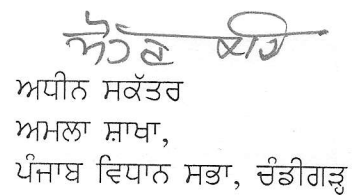 ਅਧੀਨ ਸਕੱਤਰ
ਅਮਲਾ ਸ਼ਾਖਾ,
ਪੰਜਾਬ ਵਿਧਾਨ ਸਭਾ, ਚੰਡੀਗੜ੍ਹ